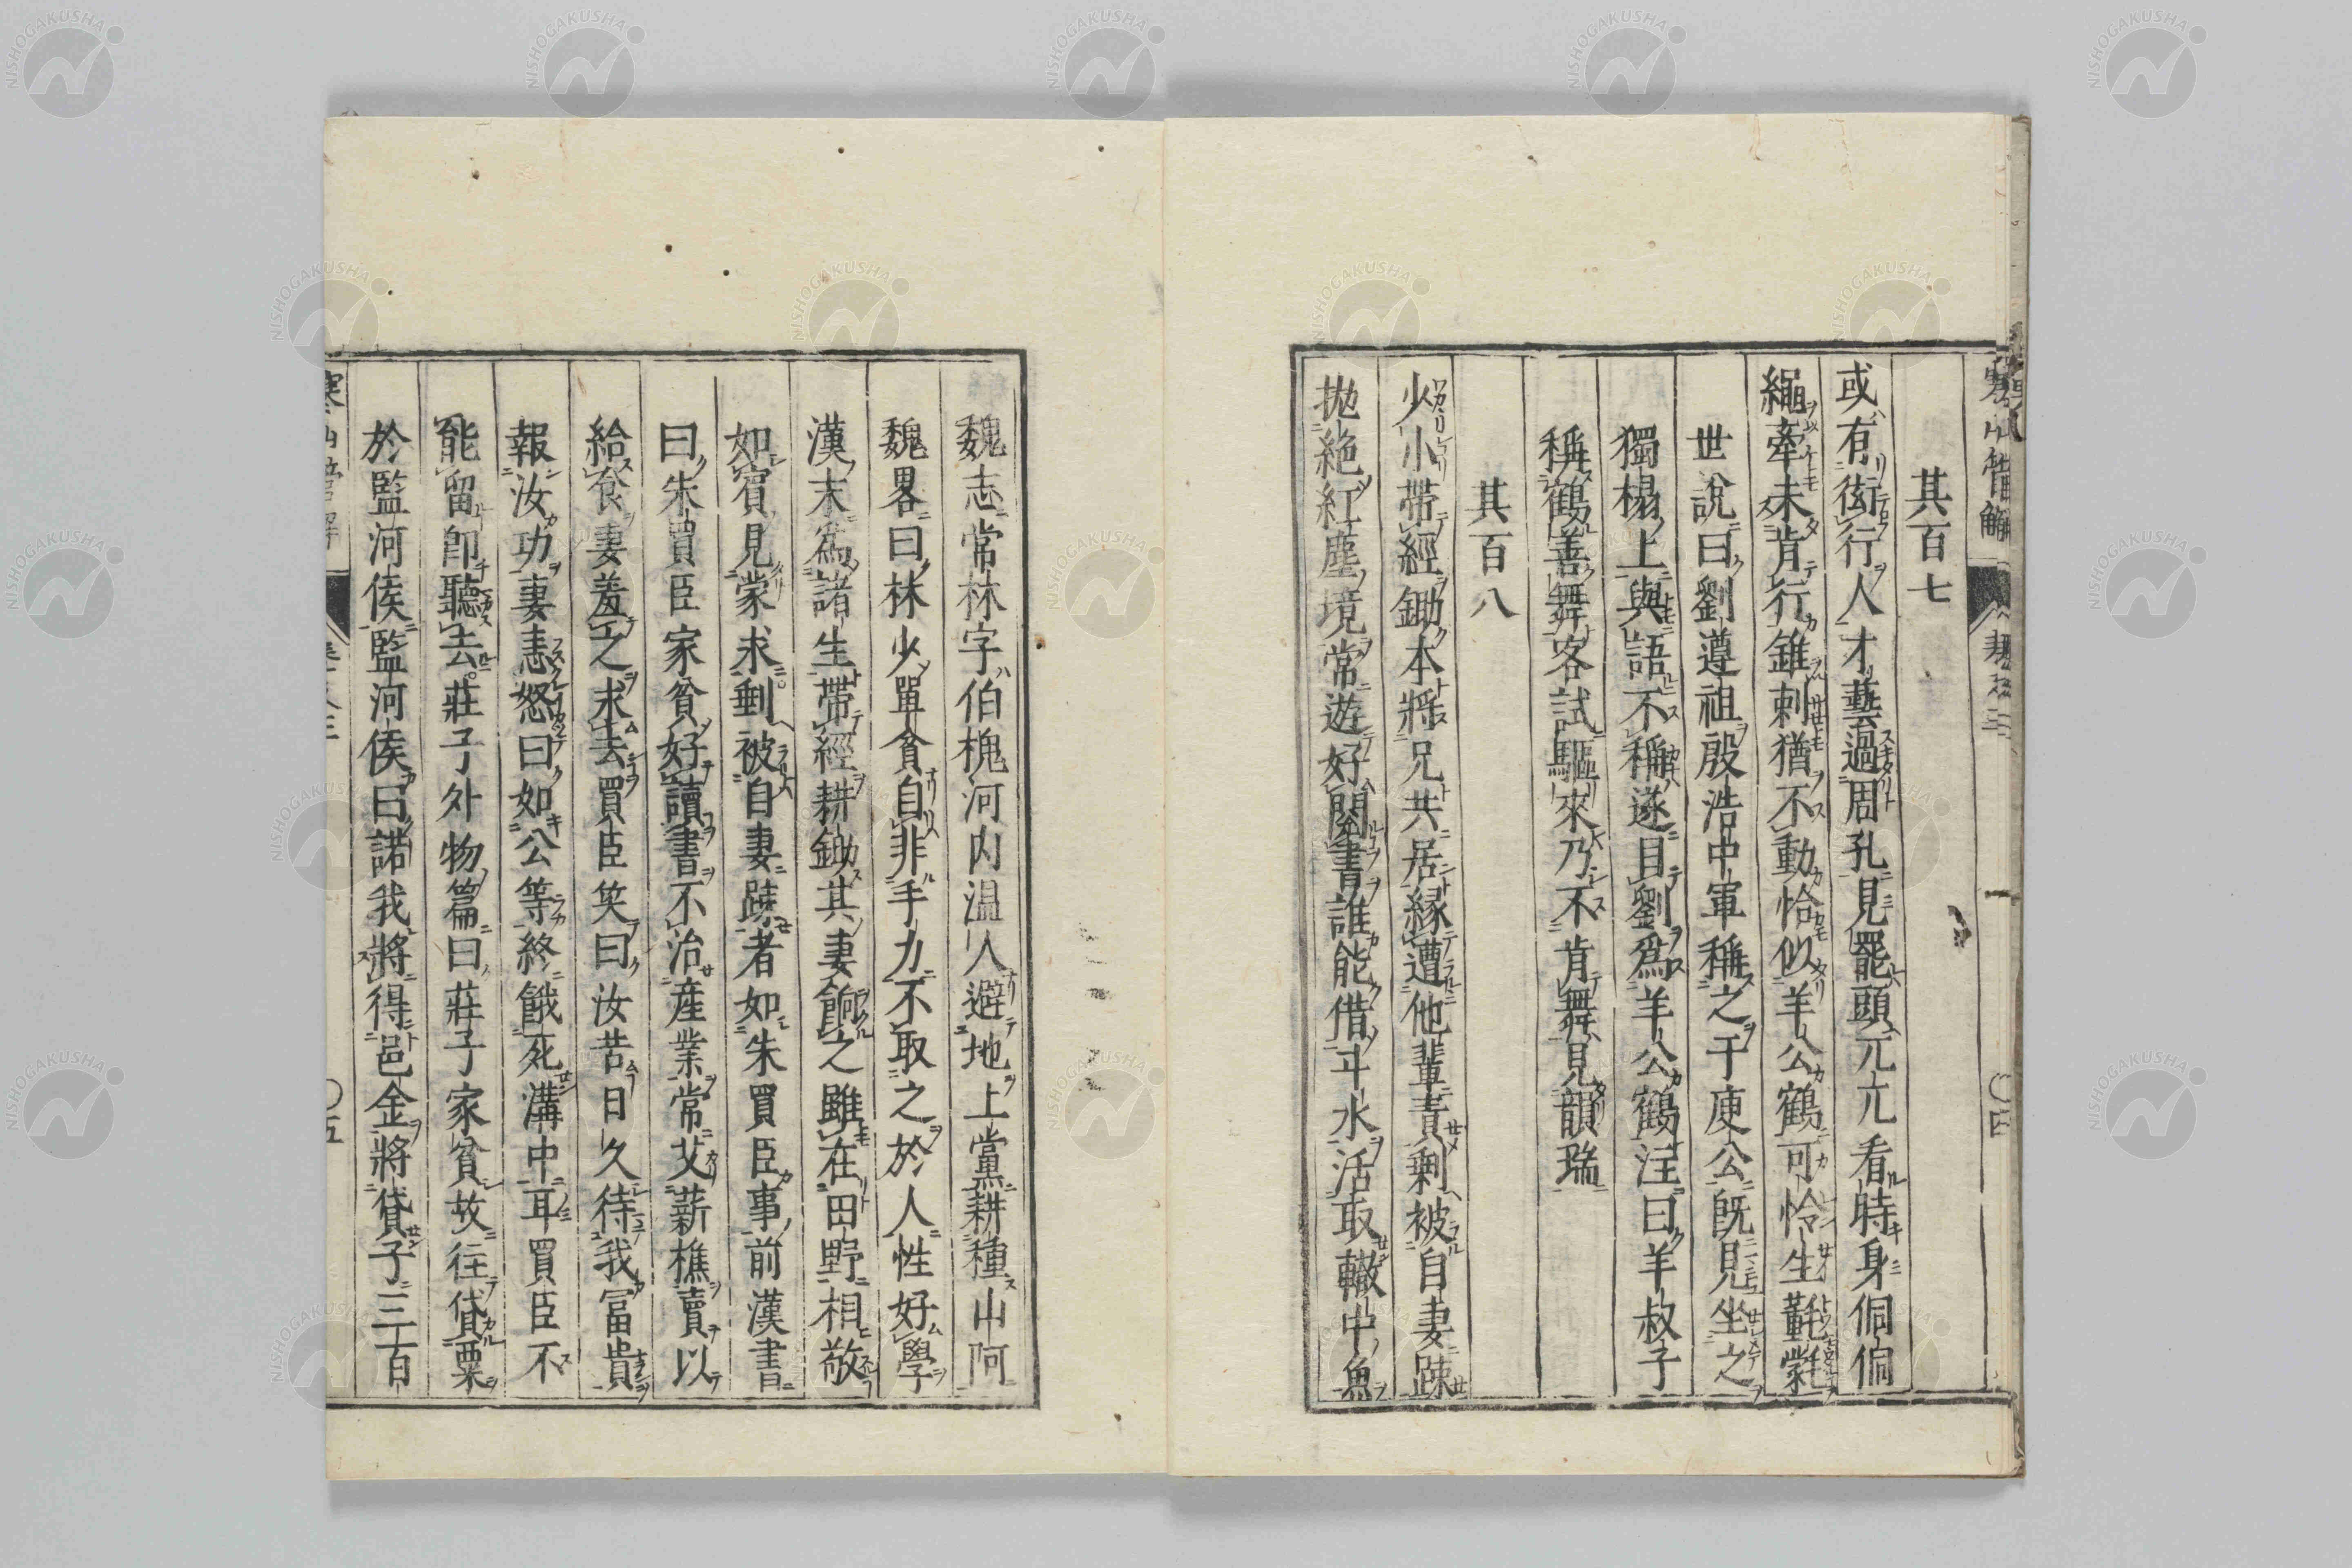 其百七
或有衒行人才藝過周孔見罷頭兀兀看時身侗侗
繩牽未肯行錐刺猶不動恰似羊公鶴可怜生氃氋
世說曰劉遵祖殷浩中軍稱之于庾公既見坐之
獨榻上與語不稱遂目劉爲羊公鶴注曰羊叔子
稱鶴善舞客試驅來乃不肯舞見韻瑞
其百八
少小帶經鋤本將兄共居緣遭他輩責剩被自妻踈
拋絕紅塵境常遊好閱書誰能借斗水活取轍中魚
魏志常林字伯槐河内温人避地上黨耕種山阿
魏畧曰林少單貧自非手力不取之於人性好學
漢末爲諸生帶經耕鋤其妻餉之雖在田野相敬
如賓見蒙求剩被自妻踈者如朱買臣事前漢書
曰朱買臣家貧好讀書不治產業常艾薪樵賣以
給食妻羞之求去買臣笑曰汝苦日久待我冨貴
報汝功妻恚怒曰如公等終餓死溝中耳買臣不
能留卽聽去莊子外物篇曰莊子家貧故往貸粟
於監河侯監河侯曰諾我將得邑金將貸子三百
NISHOGAKUSHA